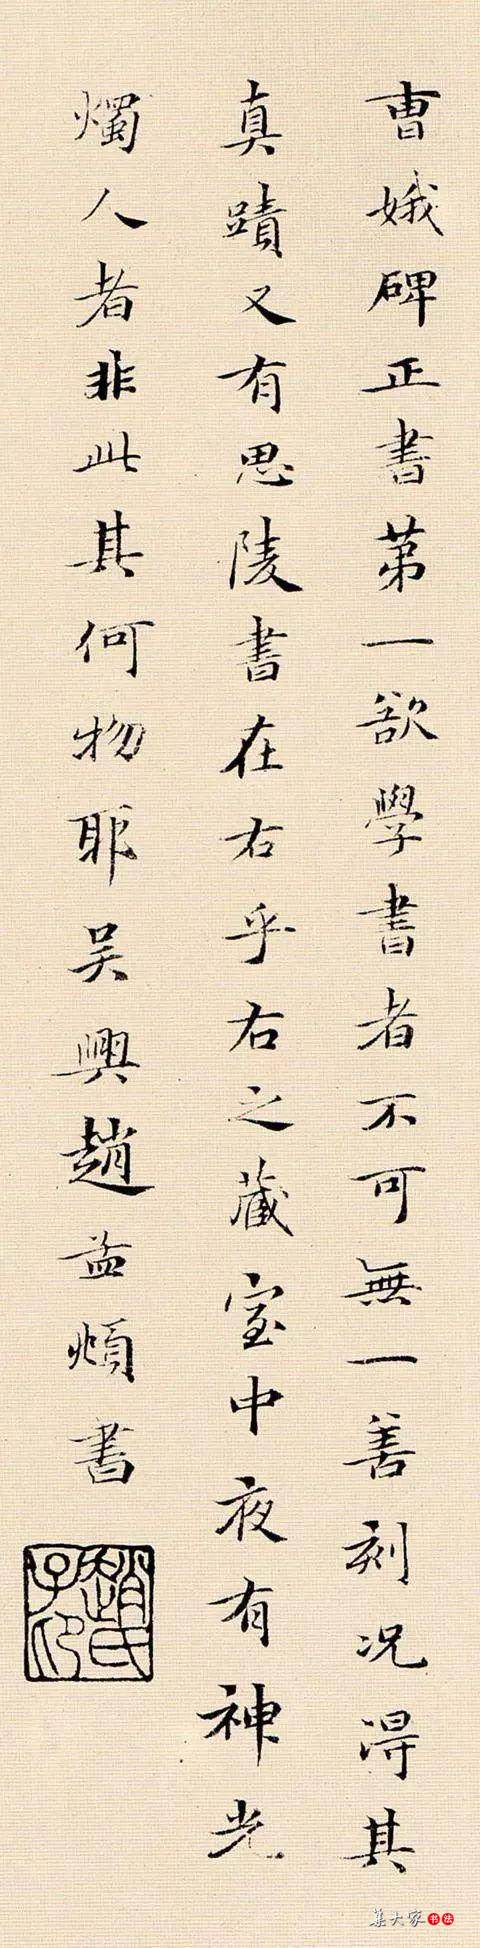 曹娥碑正書第一欲學書者不可無一善刻况得其
真蹟又有思陵書在右乎右之藏室中夜有神光
燭人者非此其何物耶吴興趙孟頫書
趙氏子印
集大家书法